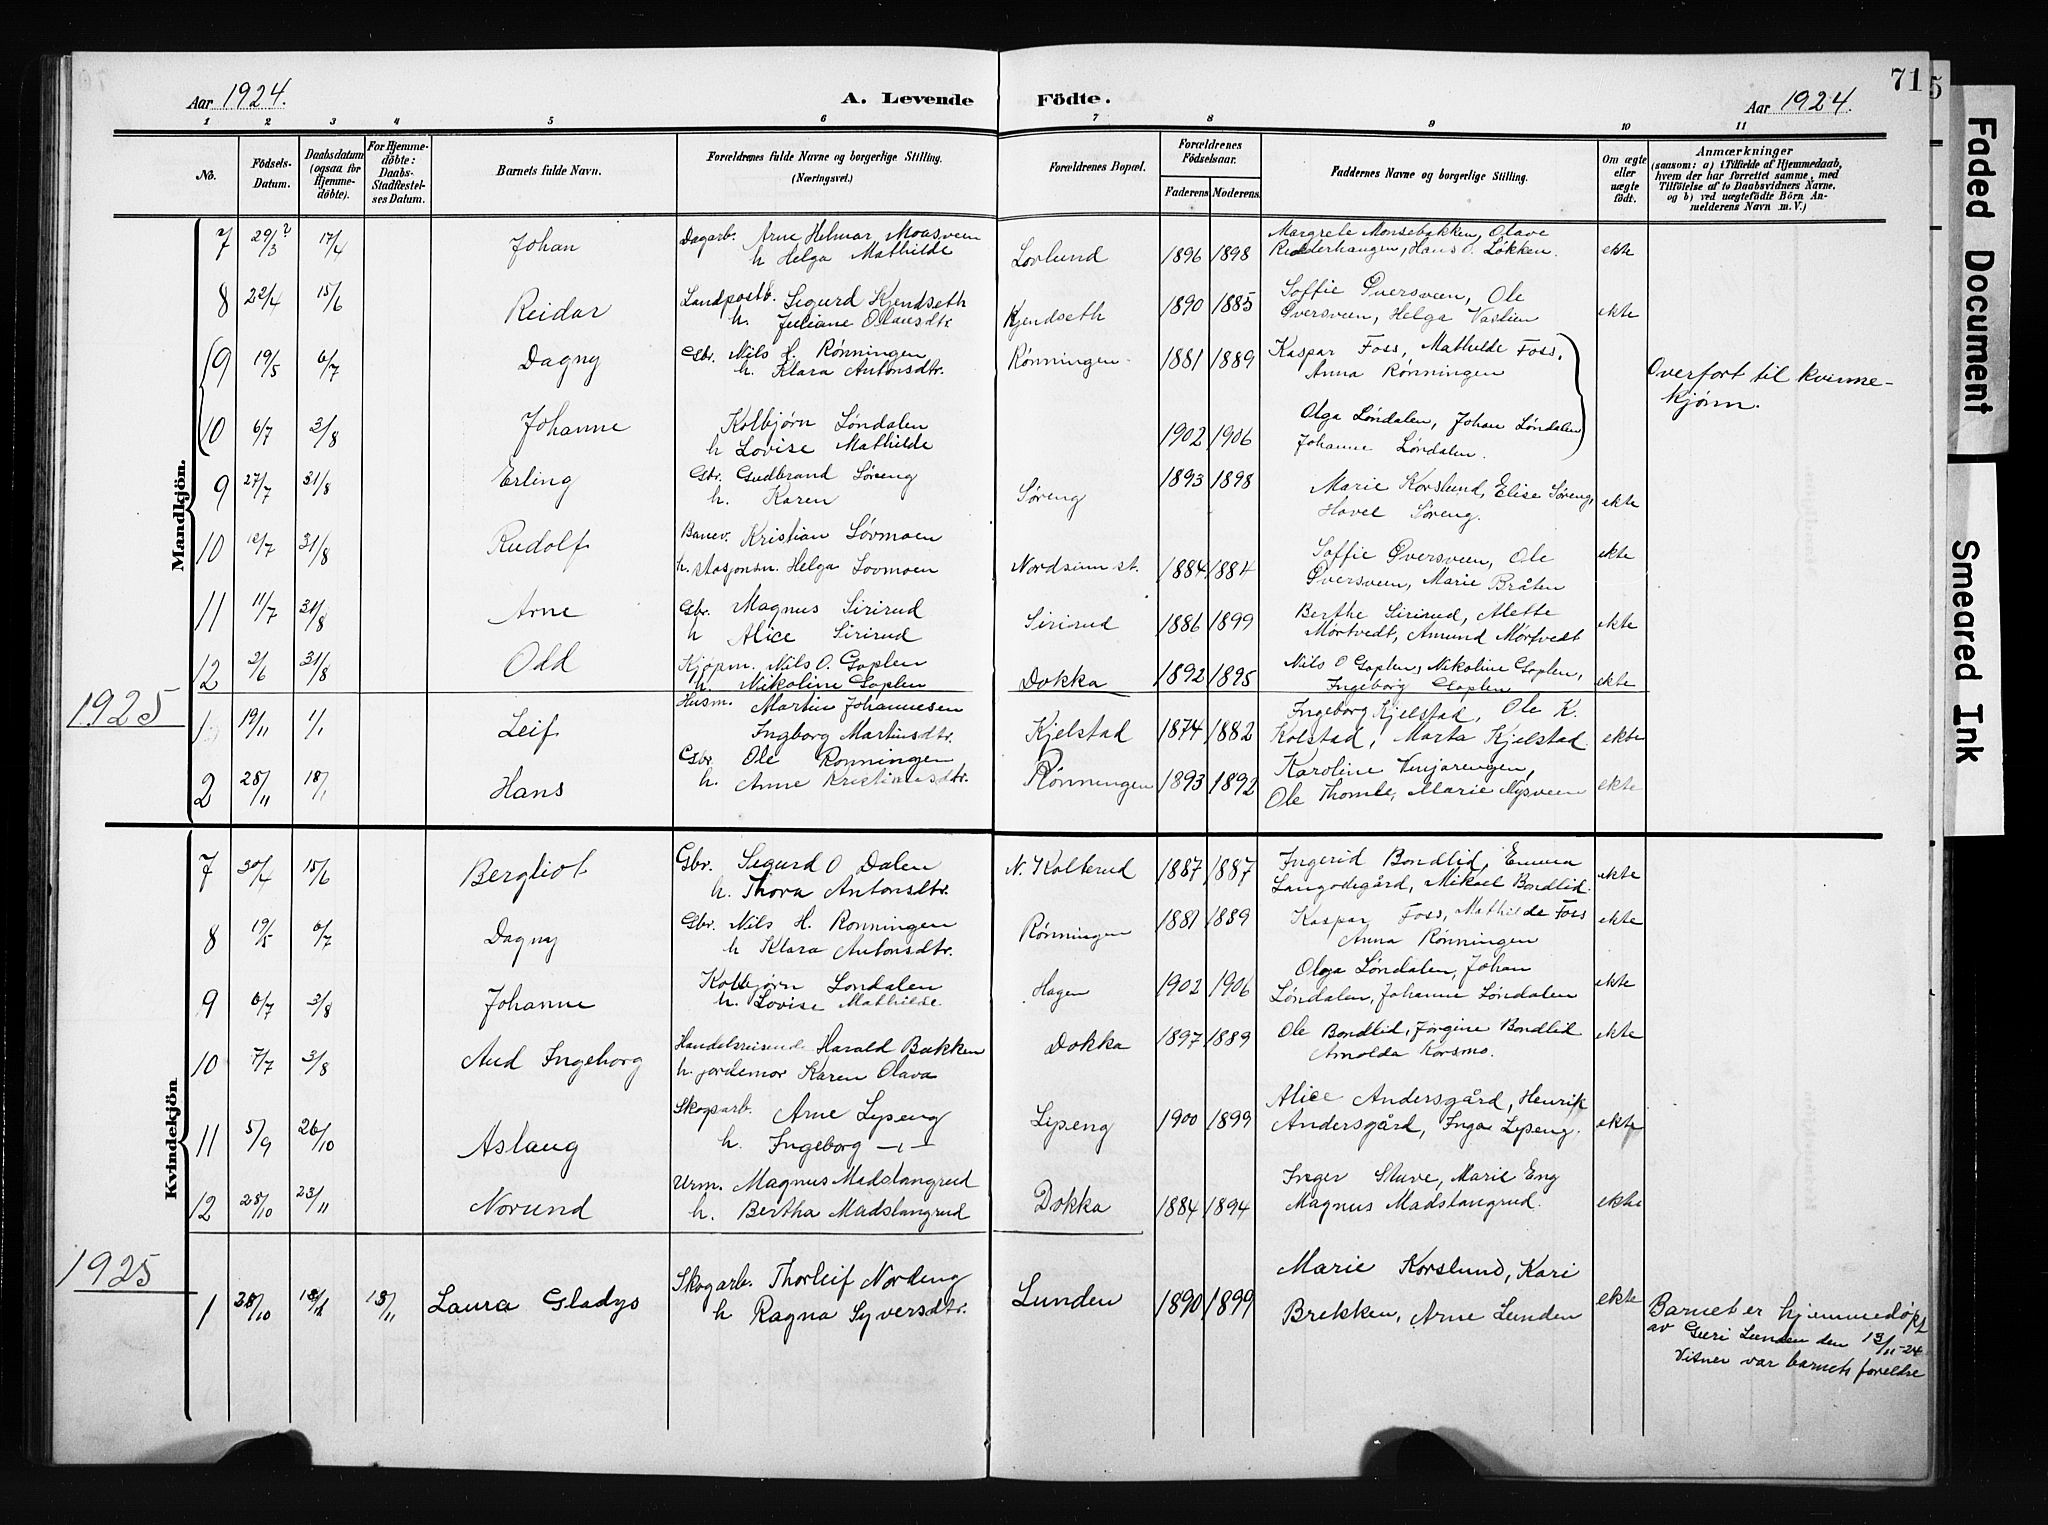 71
5
Aar 1924.
A. Levende Födte.
Aar 1924.
1 2 3 4 5 6 7 8 9 10 11
No. Födsels-Datum. Daabsdatum (ogsaa for Hjemmedöbte). For Hjemmedöbte: Daabs-Stadfæstelses Datum. Barnets fulde Navn. Forældrenes fulde Navne og borgerlige Stilling. (Næringsvei.) Forældrenes Bopæl. Forældrenes Födselsaar. Faderens Moderens. Faddernes Navne og borgerlige Stilling. Om ægte eller uægte födt. Anmærkninger (saasom: a) i Tilfælde af Hjemmedaab, hvem der har forrettet samme, med Tilföielse af to Daabsvidners Navne, og b) ved uægtefödte Börn Anmelderens Navn m. V.)
Mandkjön.
7 29/3? 17/4 Johan Dagarb. Arne Helmar Moasveen 1896 1898 Margrete Monsebakken, Olave
h Helga Mathilde Lorlund Rudderhaugen, Hans O. Løkken. ekte
8 22/4 15/6 Reidar Landpostb. Sigurd Kjendseth Kjendseth 1890 1885 Soffie Øversveen, Ole
h. Juliane Olausdtr Øversveen, Helga Vaslien ekte
9 19/5 6/7 Dagny Gbr. Nils H. Rønningen Rønningen 1881 1889 Kaspar Foss, Mathilde Foss, Overført til kvinne-
h. Klara Antonsdtr. Anna Rønningen kjønn.
10 6/7 3/8 Johanne Kolbjørn Løndalen 1902 1906 Olga Løndalen, Johan Løndalen
h Lovise Mathilde Johanne Løndalen.
9 27/7 31/8 Erling Gbr. Gudbrand Søreng Søreng 1893 1898 Marie Korslund, Elise Søreng, ekte
h. Karen Havel Søreng.
10 12/7 31/8 Rudolf Banev. Kristian Løvmoen Nordsinn st. 1884 1884 Soffie Øversveen, Ole ekte
h. stasjonsm. Helga Løvmoen Øversveen, Marie Bråten
11 11/7 31/8 Arne Gbr. Magnus Sirirud Sirirud 1886 1899 Berthe Sirirud, Mette ekte
h Alice Sirirud Mørtvedt, Amund Mørtvedt
12 2/6 31/8 Odd Kjøpm. Nils O. Goplen Dokka 1892 1895 Nils O Goplen, Nikoline Goplen, ekte
h. Nikoline Goplen Ingeborg Goplen
1925
1 19/11 1/1 Leif Husm. Martin Johannesen Kjelstad 1874 1882 Ingeborg Kjelstad, Ole K.
Ingborg Martinsdtr. Kolstad, Marta Kjelstad. ekte
2 28/11 18/1 Hans Gbr. Ole Rønningen Rønningen 1893 1892 Karoline Vinjarengen,
h. Anne Kristiansdtr. Ole Thomle, Marie Nysveen ekte
Kvindekjön
7 30/4 15/6 Bergliot Gbr. Sigurd O Dalen N. Kolterud 1887 1887 Ingerid Bondlid, Emma
h. Thora Antonsdtr. Langodegård, Mikael Bondlid. ekte
8 19/5 6/7 Dagny Gbr. Nils H. Rønningen Rønningen 1881 1889 Kaspar Foss, Mathilde Foss ekte
h Klara Antonsdtr. Anna Rønningen
9 6/7 3/8 Johanne Kolbjørn Løndalen Hagen 1902 1906 Olga Løndalen, Johan
h. Lovise Mathilde Løndalen, Johanne Løndalen ekte
10 7/7 3/8 Aud Ingeborg Handelsreisende Harald Bakken Dokka 1897 1889 Ole Bondlid, Jørgine Bondlid ekte
h. jordemor Karen Olava Arnolda Korsmo.
11 5/9 26/10 Aslaug Skogsarb. Arne Lyseng Lyseng 1900 1899 Alice Andersgård, Henrik
h. Ingeborg —"— Andersgård, Inga Lyseng. ekte
12 28/10 23/11 Norund Urm. Magnus Madslangrud Dokka 1884 1894 Inger Stuve, Marie Eng
h. Bertha Madslangrud Magnus Madslangrud. ekte
1925
1 28/10 18/1 13/11 Laura Gladys Skogarb. Thorleif Nordeng Lunden 1890 1899 Marie Korslund, Kari
h Ragna Syversdtr. Brekken, Arne Lunden ekte Barnet er hjemmedøpt
av Guri Lunden den 13/11-24
Vitner var barnets foreldre
Faded Document
Smeared Ink